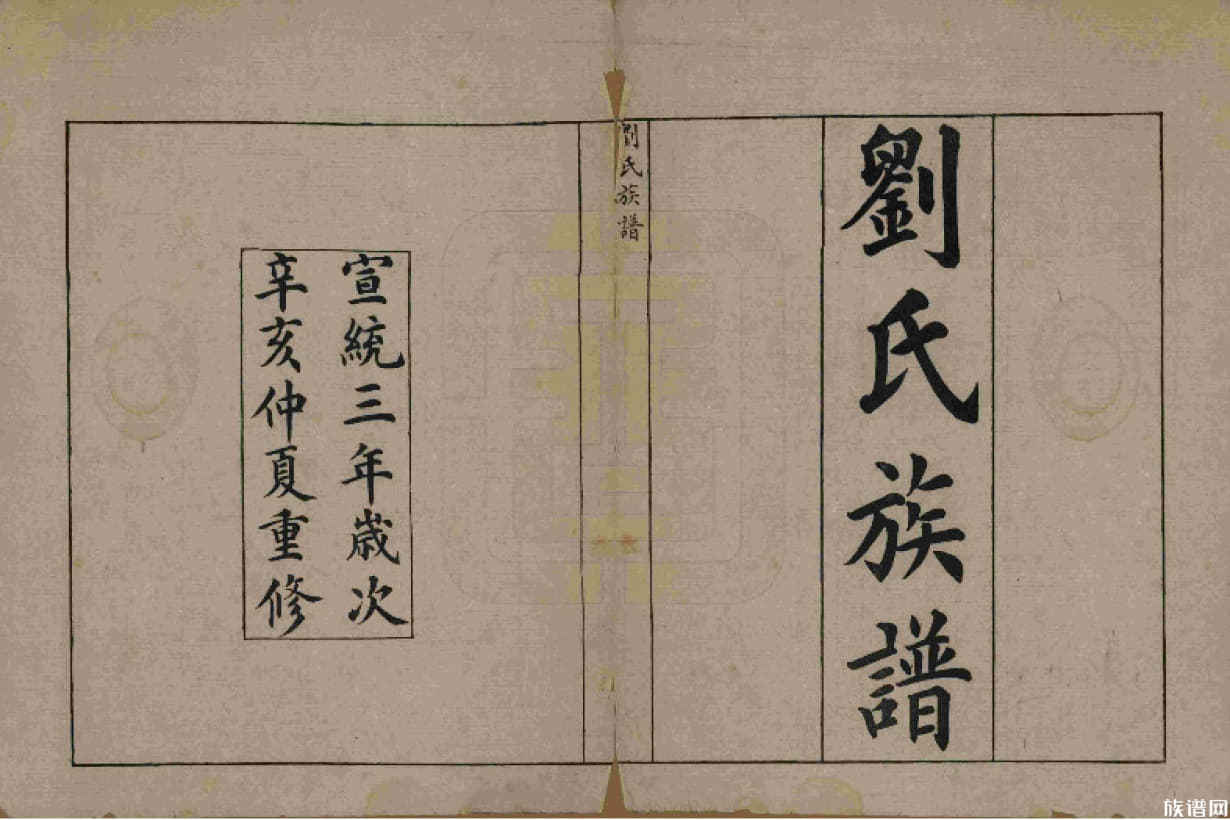 劉氏族譜
劉氏族譜
宣統三年歲次
辛亥仲夏重修
族谱网